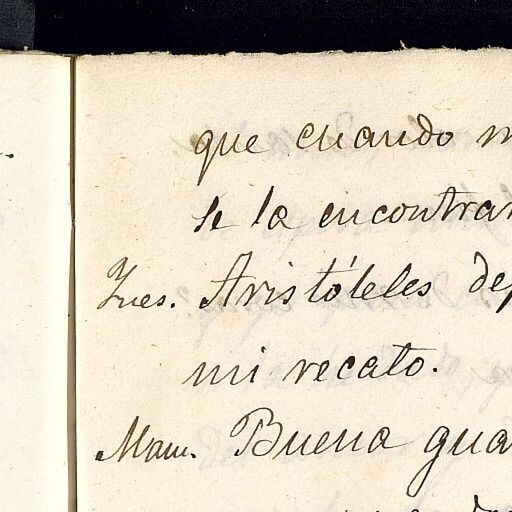 que cuando
se la encontrar
Ynes. Aristóteles
mi recato.
Mam. Buena